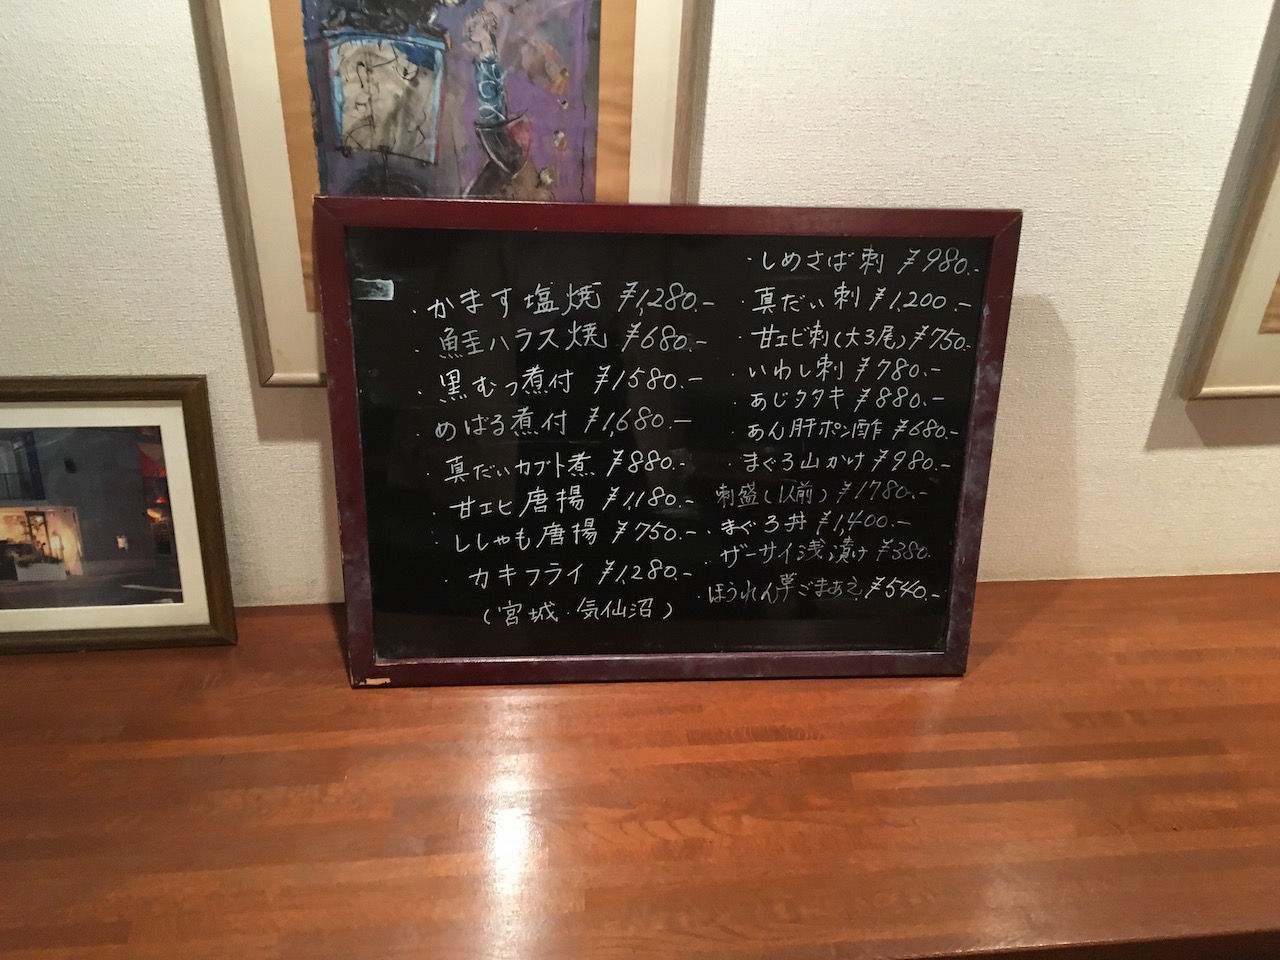 ・かます塩焼 ¥1,280.-
・鮭ハラス焼 ¥680.-
・黒むつ煮付 ¥1580.-
・めばる煮付 ¥1,680.-
・真だいカブト煮 ¥880.-
・甘エビ唐揚 ¥1,180.-
・ししゃも唐揚 ¥750.-
・カキフライ ¥1,280.-
(宮城・気仙沼)
・しめさば刺 ¥980.-
・真だい刺 ¥1,200.-
・甘エビ刺(大3尾) ¥750.-
・いわし刺 ¥780.-
・あじタタキ ¥880.-
・あん肝ポン酢 ¥680.-
・まぐろ山かけ ¥980.-
刺盛(1人前) ¥1780.-
・まぐろ丼 ¥1,400.-
・ザーサイ浅漬け ¥380.
・ほうれん草ごまあえ ¥540.-